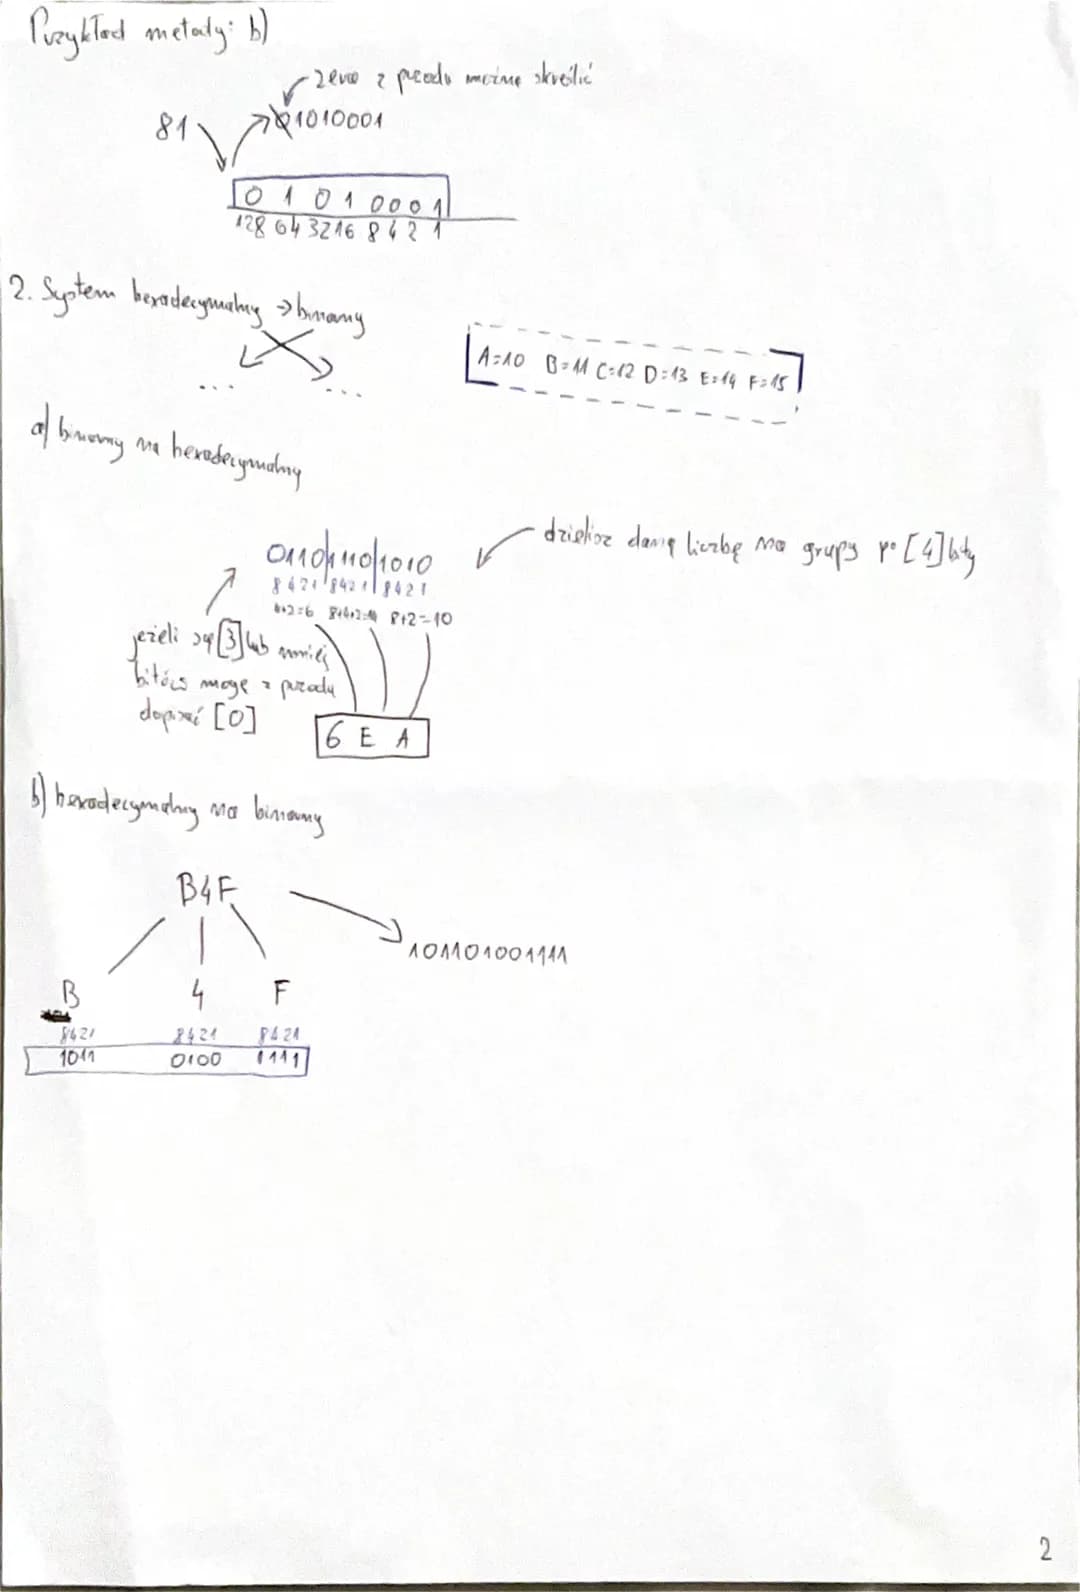 Przykład metody: b)
zero z przodu można skreślić
81
01010001
0 1 0 1 0 0 0 1
128 64 32 16 8 4 2 1
2. System hexadecymalny → binarny
... ...
A=10 B=11 C=12 D=13 E=14 F=15
a) binarny na hexadecymalny
dzielisz daną liczbę na grupy po [4] bity
0110|1110|1010
8421|8421|8421
4+2=6 8+4+2=14 8+2=10
jeżeli są [3] lub mniej
bitów mogę z przodu
dopisać [0]
6 E A
b) hexadecymalny na binarny
B4F
101101001111
B 4 F
8421 8421 8421
1011 0100 1111
2